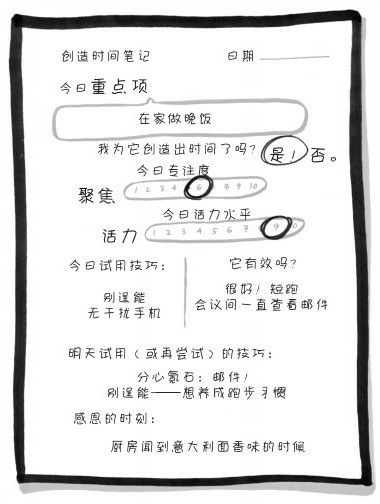 创造时间笔记 日期
今日重点项
在家做晚饭
我为它创造出时间了吗? 是 / 否。
今日专注度
聚焦 1 2 3 4 6 8 9 10
今日活力水平
活力 1 2 3 4 5 6 7 9
今日试用技巧: 它有效吗?
别逞能 很好! 短跑
无干扰手机 会议间一直查看邮件
明天试用(或再尝试)的技巧:
分心氪石: 邮件!
别逞能——想养成跑步习惯
感恩的时刻:
厨房闻到意大利面香味的时候